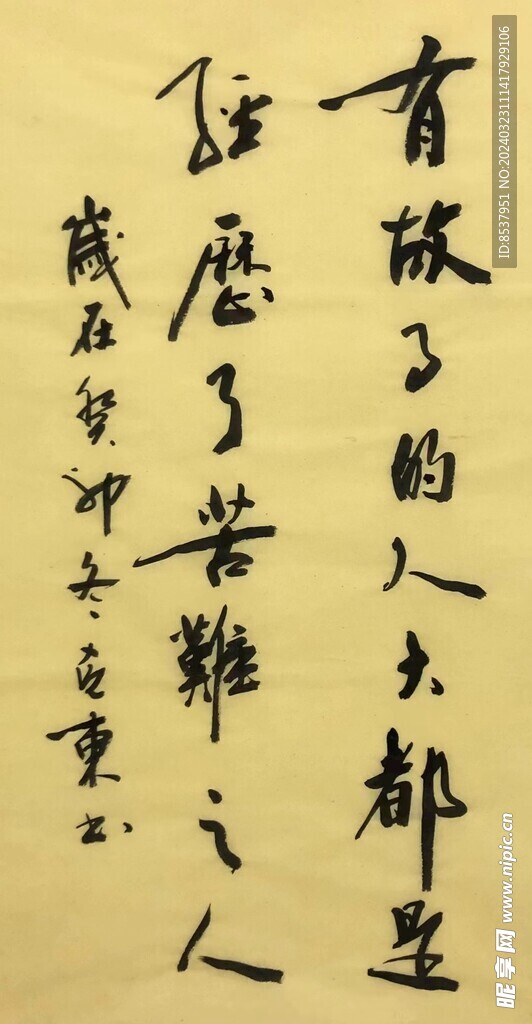 有故事的人大都是
經歷了苦難之人
歲在癸卯冬 東書
ID:8537951 NO:20240323111417929106
昵享网 www.nipic.cn